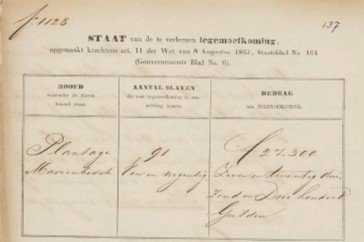 f. 1128
137
STAAT van de te verleenen tegemoetkoming,
opgemaakt krachtens art. 11 der Wet van 8 Augustus 1862, Staatsblad No. 164
(Gouvernements Blad No. 6).
HOOFD
waaronder de slaven
bekend staan.
AANTAL SLAVEN
die voor tegemoetkoming in aan-
merking komen.
BEDRAG
der TEGEMOETKOMING.
Plantage
Marienbosch
91
Een en negentig
ƒ 27,300
Zeven en twintig dui-
zend en Drie honderd
Gulden